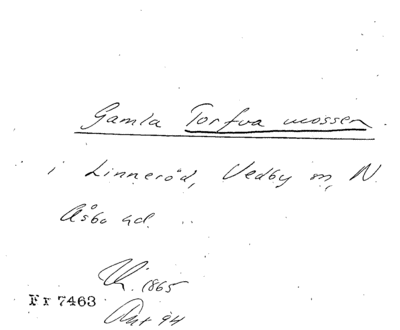 Gamla Torfva mossen
i Linneröd, Vedby sn, N.
Åsbo hd.
1865
Fr 7463
Akt 94